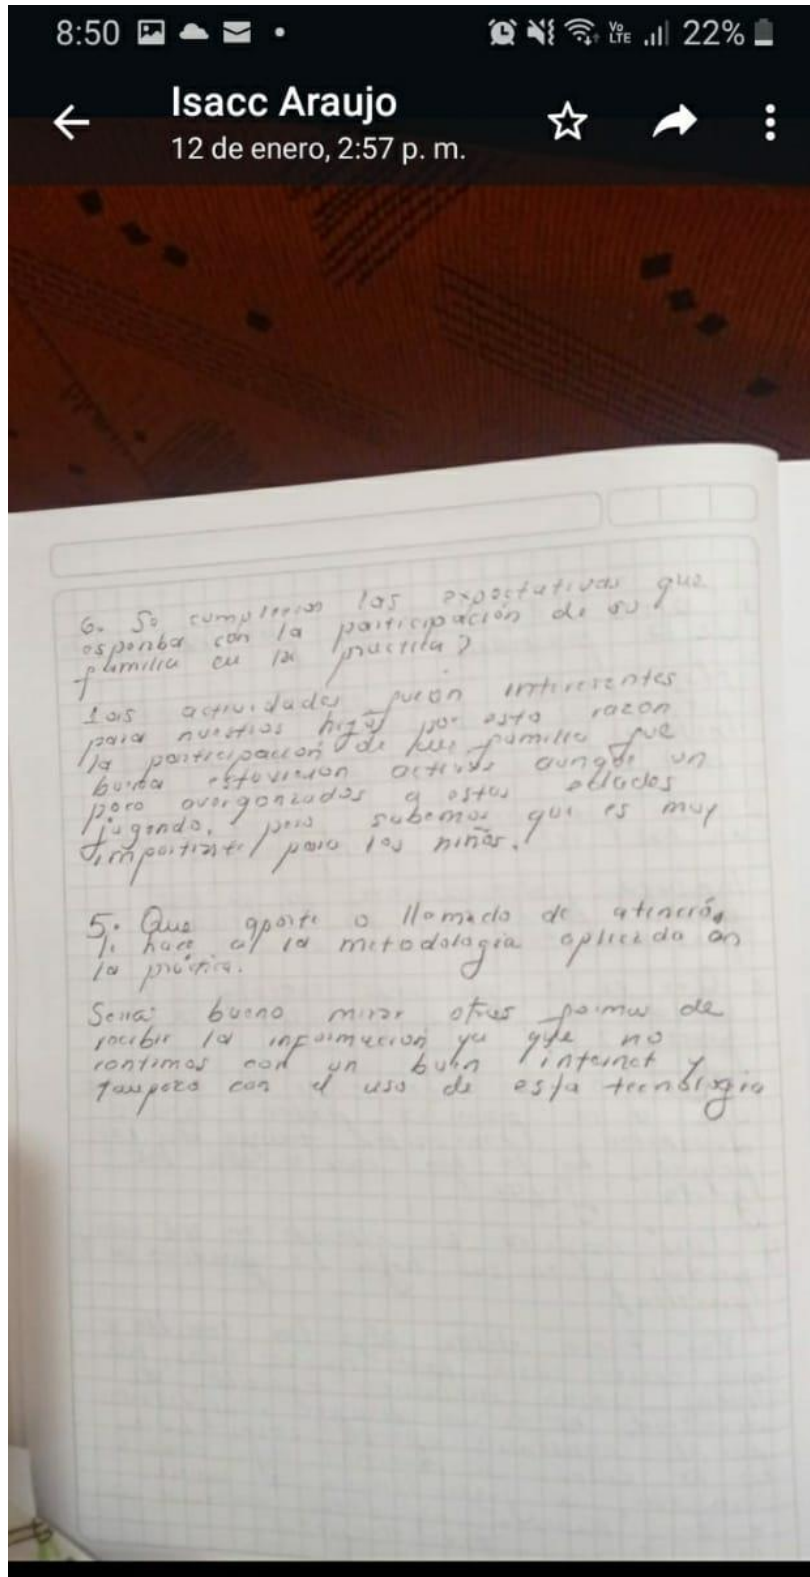 8:50
Vo LTE 22%
Isacc Araujo
12 de enero, 2:57 p. m.
6. Se cumplieron las expectativas que
esperaba con la participación de su
familia en la practica?
Las actividades
para nuestros por esta razon
la participación de familia fue
buena estuvieron activos aunque un
poco avergonzados a estas edades
jugando, pero sabemos que es muy
importante para los niños.
5. Que aporte o llamado de atención
le hace a la metodologia aplicada en
la práctica.
Seria bueno mirar otras formas de
recibir la información ya que no
contamos con un buen internet y
tampoco con el uso de esta tecnologia